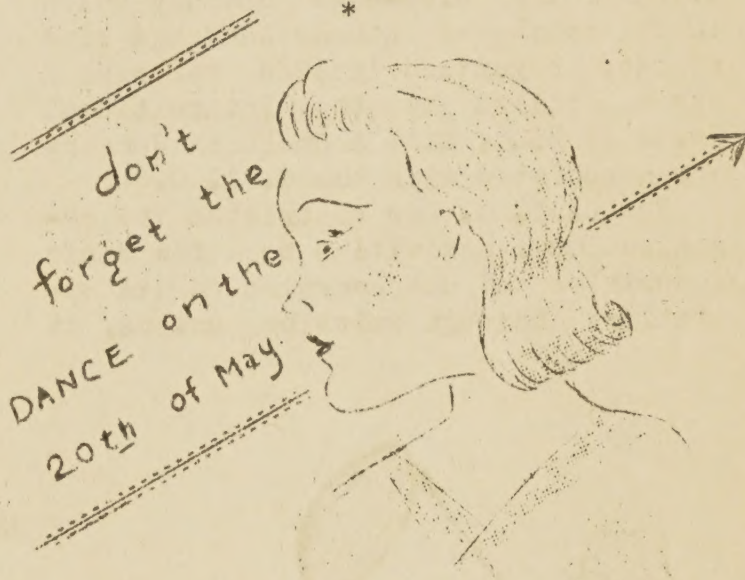 *
don't
forget the
DANCE on the
20th of May